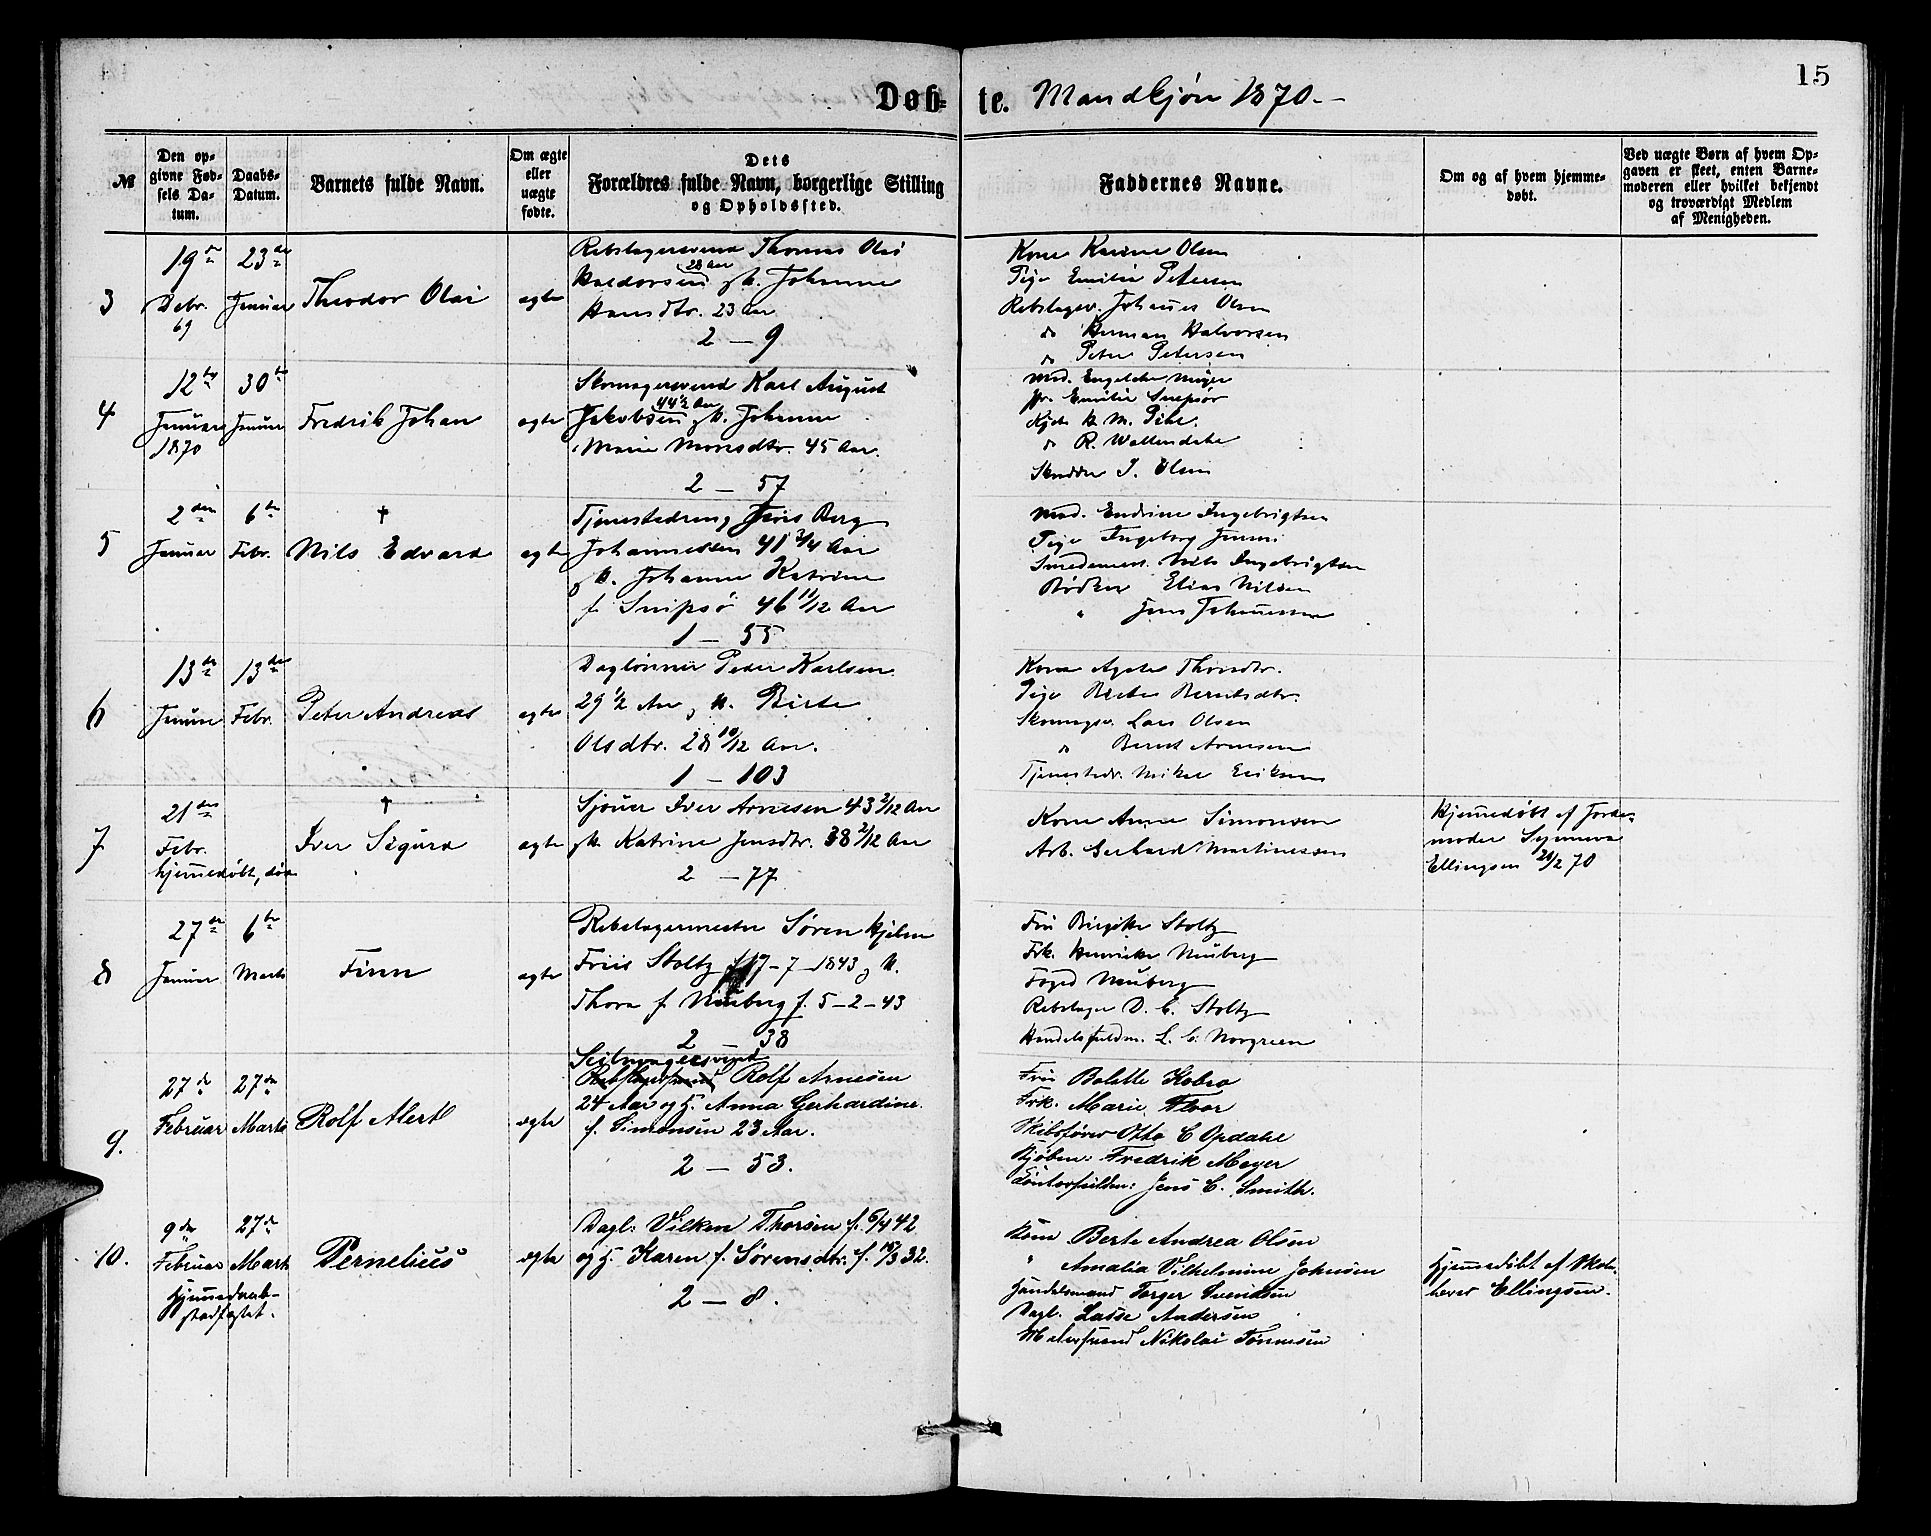 15
Døb- te. Mandkjøn 1870.-
№
Den op-
givne Fød-
sels Da-
tum.
Daabs-
Datum.
Barnets fulde Navn.
Om ægte
eller
uægte
fødte.
Dets
Forældres fulde Navn, borgerlige Stilling
og Opholdssted.
Faddernes Navne.
Om og af hvem hjemme-
døbt.
Ved uægte Børn af hvem Op-
gaven er skeet, enten Barne-
moderen eller hvilket bekjendt
og troværdigt Medlem
af Menigheden.
3
19de
Debr.
69
23de
Januar
Theodor Olai
ægte
Rebslagersvend Thomas Olai
Haldorsen 28 Aar og H. Johanne
Hansdtr. 23 Aar
2 - 9
Kone Karine Olsen
Pige Emilie Petersen
Rebslagersv. Johannes Olsen
do Herman Halvorsen
do Peter Petersen
4
12te
Januar
1870
30te
Januar
Fredrik Johan
ægte
Skomagersvend Karl August
Jakobsen 44 1/2 Aar og H. Johanne
Marie Monsdtr. 45 Aar.
2 - 57
Mad. Engelche Meyer
Fr. Emilie Snipsør
Kjøb. H. M. Pihl.
do R. Wallendahl
Skrædder J. Olsen
5
2den
Januar
6te
Febr.
†
Nils Edvard
ægte
Tjenestedreng Jens Berg
Johannessen 41 3/4 Aar
og H. Johanne Katrine
f. Snipsø 46 11/12 Aar
1 - 55
Mad. Endrine Ingebrigtsen
Pige Ingeborg
Smedemest. Nils Ingebrigtsen
Bødker Elias Nilsen
" Jens Johannessen
6
13de
Januar
13de
Febr.
Peter Andreas
ægte
Daglønner Peder Karlsen
29 1/2 Aar og H. Birte
Olsdtr. 28 10/12 Aar.
1 - 103
Kone Agete Thorsdtr.
Pige Berte Berntsdtr.
Skomagersv. Lars Olsen
do Bernt Arnesen
Tjenestedr. Mikal Eriksen
7
21de
Febr.
hjemmedøbt, død
†
Iver Sigurd
ægte
Sjouer Iver Arnesen 43 2/12 Aar
og H. Katrine Jensdtr. 38 2/12 Aar
2 - 77
Kone Anne Simonsen
Arb. Gerhard Martinessen
Hjemmedøbt af Jorde-
moder Synneva
Ellingsen 21/2 70
8
27de
Januar
6te
Marts
Finn
ægte
Rebslagermester Søren Hjelm
Friis Stoltz f. 17-7-1843 og H.
Thora f. Neuberg f. 5-2-43
2 - 38
Fru Birgitte Stoltz
Frk. Henrikke Neuberg
Foged Neuberg
Rebslager D. C. Stoltz
Handelsfuldm. L. C. Norgreen
9.
27de
Februar
27de
Marts
Rolf Alert
ægte
Seilmagersvend
Rebslagersvend Rolf Arnesen
24 Aar og H. Anna Gerhardine
f. Simonsen 23 Aar.
2 - 53.
Fru Bolette Kobro
Frk. Marie Floor
Skibsfører Otto C Opdahl
Kjøbm: Fredrik Meyer
Jens C. Smith.
10.
9de
Februar
Hjemmedaab-
stadfæstet.
27de
Marts
Pernelius
ægte
Dagl: Vilken Thorsen f. 6/4 42
og H. Karen f. Sørensdtr. f. 15/3 32.
2 - 8.
Kone Berte Andrea Olsen
" Amalia Vilhelmine Johnsen
Handelsmand Torger Svendsen
Dagl. Lasse Andersen
Malersvend Nikolai Tønnesen
Hjemmedøbt af Skole-
lærer Ellingsen.